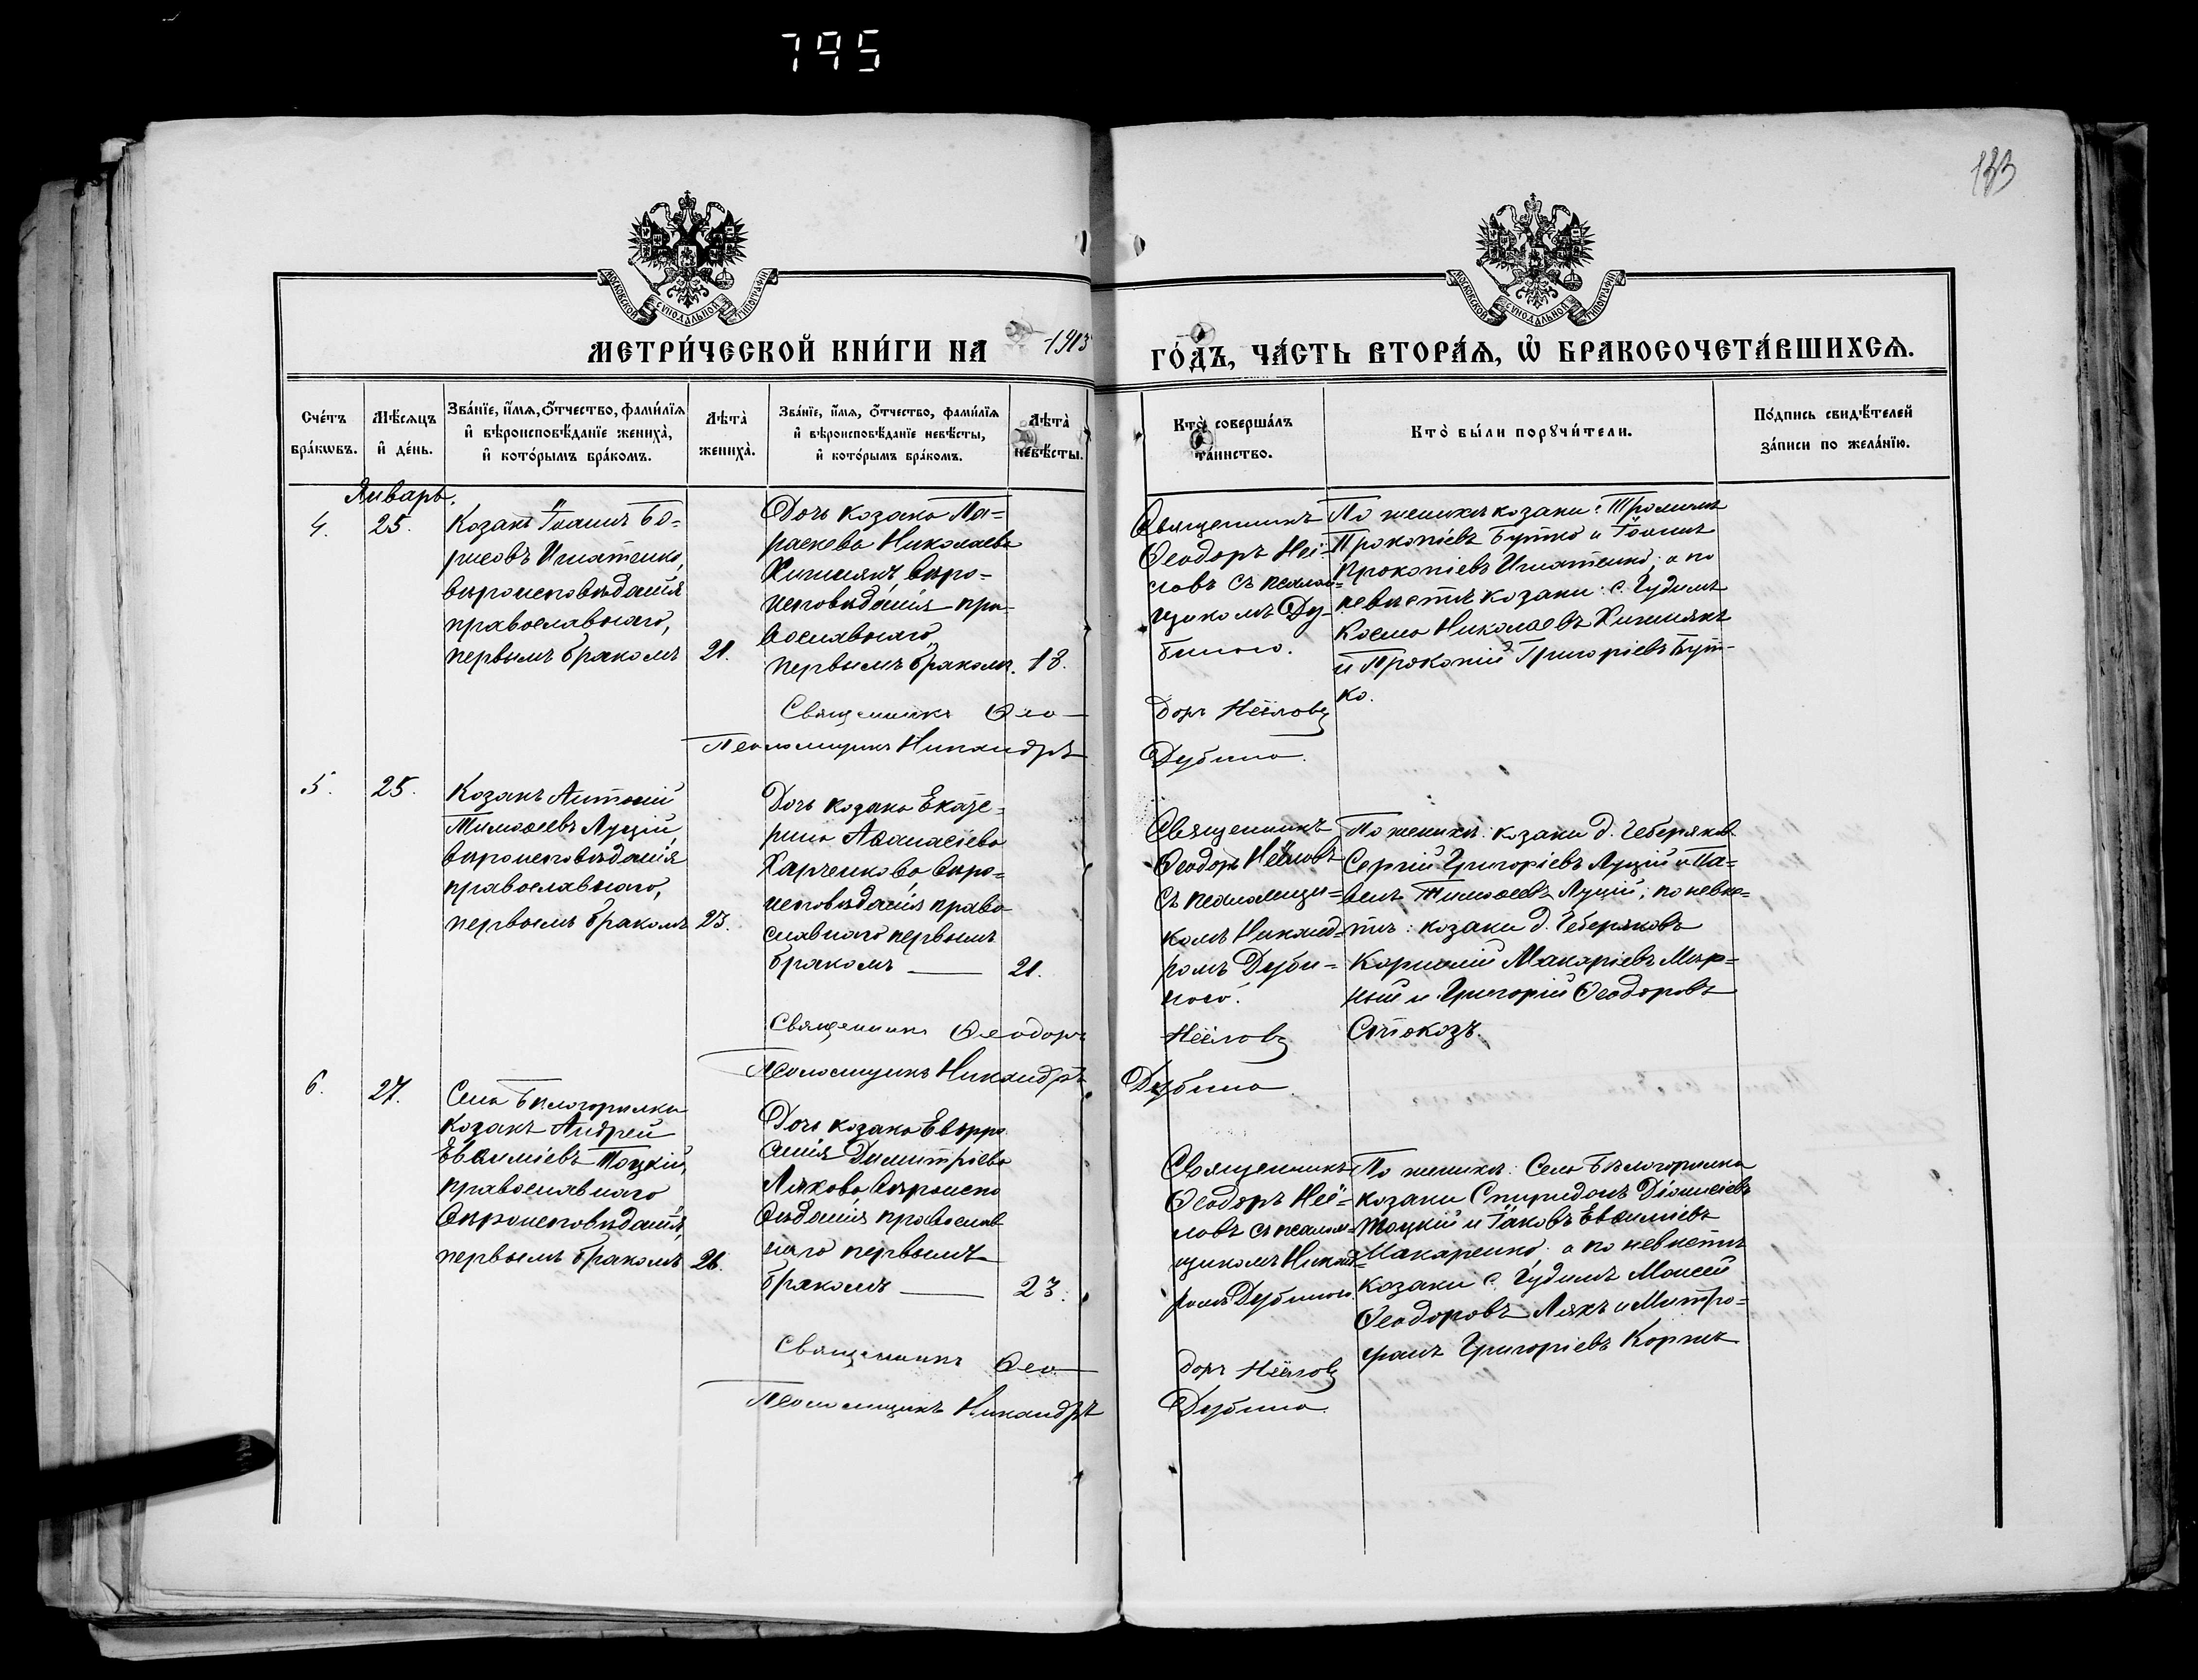 795
133
МОСКОВСКОЙ СѴНОДАЛЬНОЙ ТИПОГРАФІИ
МОСКОВСКОЙ СѴНОДАЛЬНОЙ ТИПОГРАФІИ
МЕТРИ́ЧЕСКОЙ КНИ́ГИ НА 1913
ГО́ДЪ, ЧА́СТЬ ВТОРА́Ѧ, Ѡ҆ БРАКОСОЧЕТА́ВШИХСѦ.
Сче́тъ
бра́кѡвъ.
Мѣ́сѧцъ
и҆ де́нь.
Зва́нїе, и҆́мѧ, ѻ҆́тчество, фами́лїѧ
и҆ вѣроисповѣ́данїе жениха̀,
и҆ кото́рымъ бра́комъ.
Лѣ́та̀
жениха̀.
Зва́нїе, и҆́мѧ, ѻ҆́тчество, фами́лїѧ
и҆ вѣроисповѣ́данїе невѣ́сты,
и҆ кото́рымъ бра́комъ.
Лѣ́та̀
невѣ́сты.
Кто̀ соверша́лъ
та́инство.
Кто̀ бы́ли порꙋчи́тели.
По́дпись свидѣ́телей
за́писи по жела́нїю.
Январь.
4.
25.
Козакъ Іоаннъ Бо-
рисовъ Игнатенко,
вѣроисповѣданія
православнаго,
первымъ бракомъ
21.
Дочь козака Па-
раскева Николаева
Хижнякъ, вѣро-
исповѣданія пра-
вославнаго
первымъ бракомъ.
18.
Священникъ
Ѳеодоръ Неё-
ловъ съ псалом-
щикомъ Ду-
биною.
По женихѣ козаки: Трофимъ
Прокопіевъ Бутко и Іоаннъ
Прокопіевъ Игнатенко; а по
невѣстѣ козаки: с. Чудимъ
Косма Николаевъ Хижнякъ
и Прокопій Григоріевъ Бут-
ко.
Священникъ Ѳео-
доръ Неёловъ
Псаломщикъ Никандръ
Дубина.
5.
25.
Козакъ Антоній
Тимоѳеевъ Луцій,
вѣроисповѣданія
православнаго,
первымъ бракомъ
23.
Дочь козака Екате-
рина Аѳанасіева
Харченкова, вѣро-
исповѣданія право-
славнаго первымъ
бракомъ
21.
Священникъ
Ѳеодоръ Неёловъ
съ псаломщи-
комъ Никанд-
ромъ Дуби-
ною.
По женихѣ: козаки д. Чеберяковъ
Сергій Григоріевъ Луцій и Па-
велъ Тимоѳеевъ Луцій; по невѣс-
тѣ: козаки д. Чеберяковъ
Корнилій Макаріевъ Мир-
ный и Григорій Ѳеодоровъ
Стоко́зъ.
Священникъ Ѳеодоръ
Неёловъ
Псаломщикъ Никандръ
Дубина.
6.
27.
Села Бѣлогорилки
козакъ Андрей
Евѳиміевъ Тоцкій,
православнаго
вѣроисповѣданія,
первымъ бракомъ
26.
Дочь козака Евфро-
синія Димитріева
Ляхова, вѣроиспо-
вѣданія православ-
наго первымъ
бракомъ
23.
Священникъ
Ѳеодоръ Неё-
ловъ съ псалом-
щикомъ Никанд-
ромъ Дубиною
По женихѣ: Села Бѣлогорилки
козаки Спиридонъ Діонисіевъ
Тоцкій и Іаковъ Евѳиміевъ
Макаренко; а по невѣстѣ
козаки с. Чудимъ Моисей
Ѳеодоровъ Ляхъ и Митро-
фанъ Григоріевъ Коржъ
Священникъ Ѳео-
доръ Неёловъ
Псаломщикъ Никандръ
Дубина.